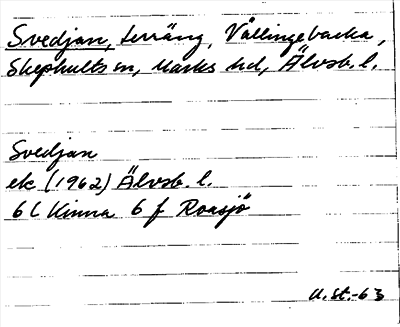 Svedjan, terräng, Vällingebacka,
Skephults sn, Marks hd, Älvsb. l.
Svedjan
ek (1962) Älvsb. l.
6 C Kinna 6 f Roasjö
U. St.-63